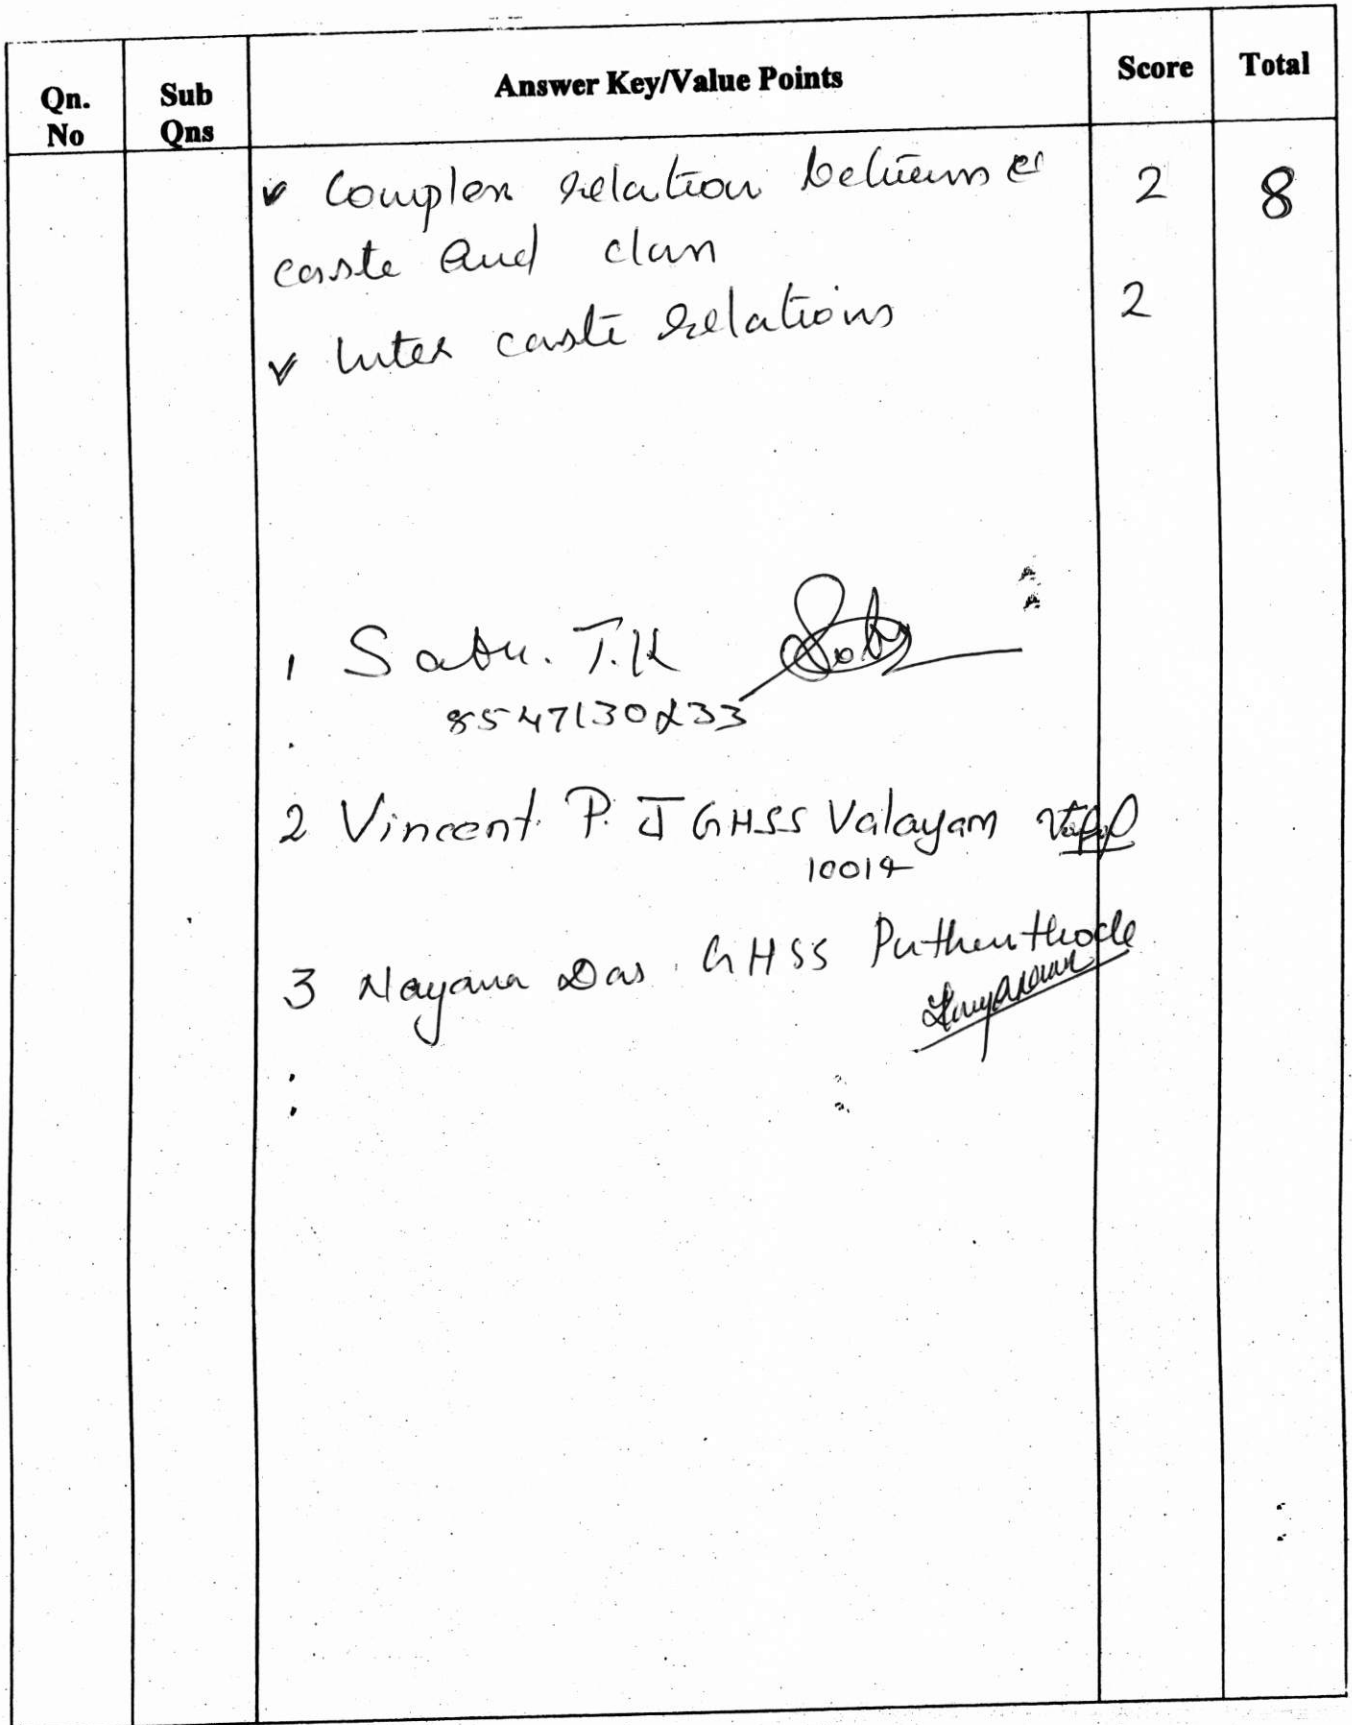 Qn. No
Sub Qns
Answer Key/Value Points
Score
Total
Complex relation between
caste and clan
2
8
Inter caste relations
2
1 Sabu. T.K
8547130233
2 Vincent. P. J GHSS Valayam
10014
3 Nayana Das. GHSS Puthenthode